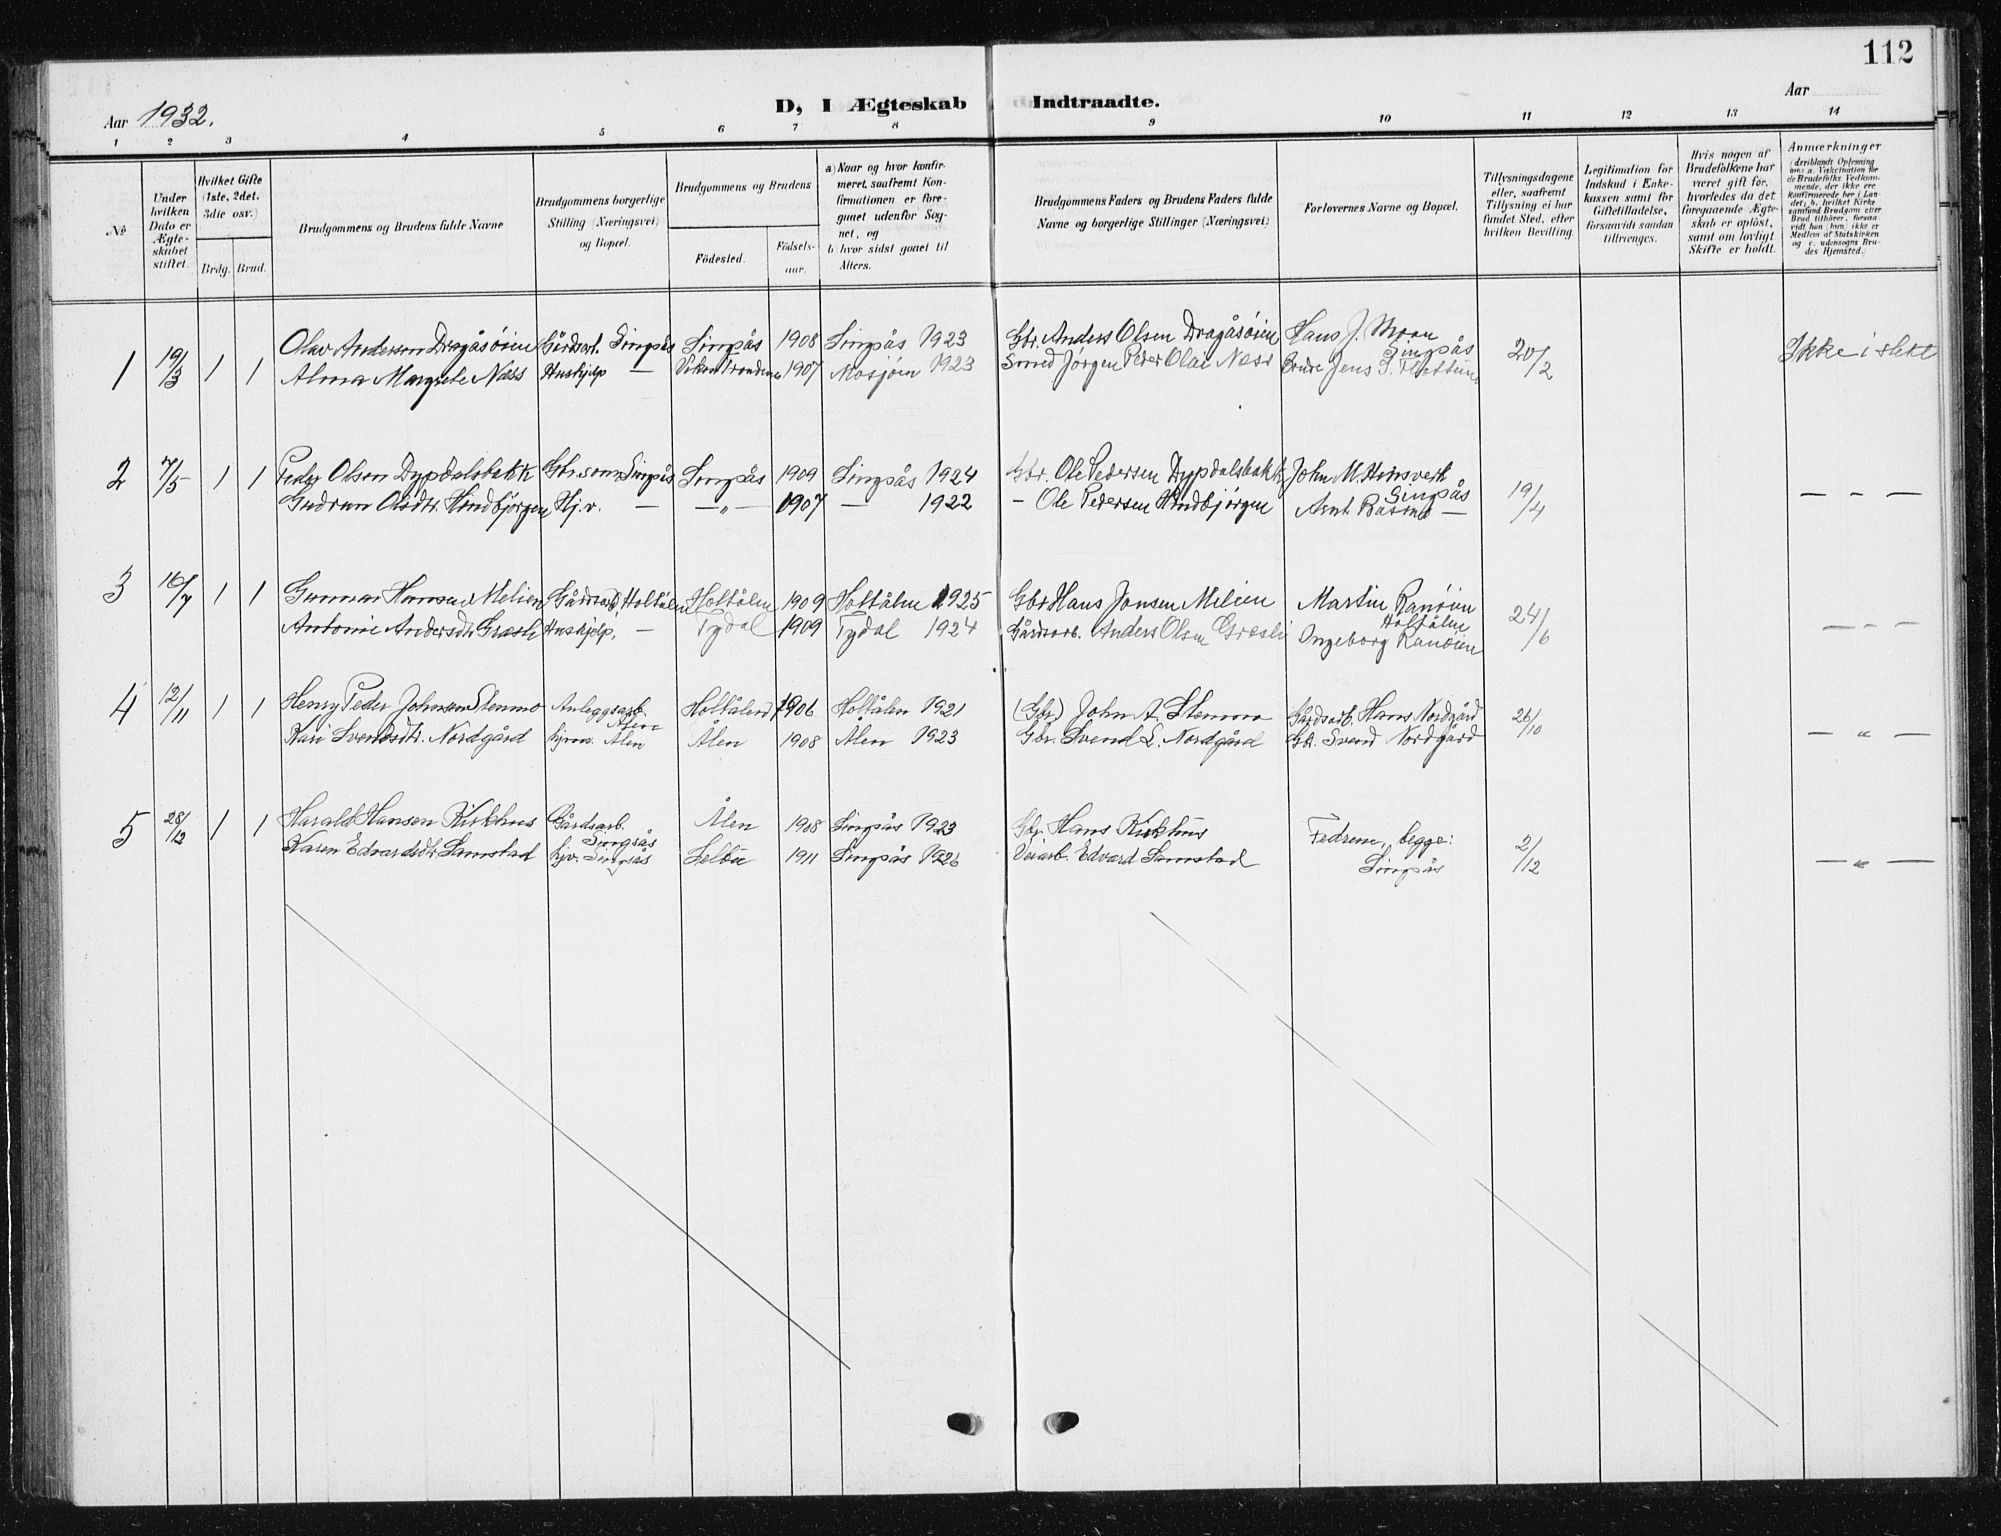 112
D, I Ægteskab Indtraadte.
Aar 1932.
Aar
1 2 3 4 5 6 7 8 9 10 11 12 13 14
No
Under hvilken Dato er Ægteskabet stiftet.
Hvilket Gifte (1ste, 2det, 3die osv.)
Brdg. Brud.
Brudgommens og Brudens fulde Navne
Brudgommens borgerlige Stilling (Næringsvei) og Bopæl.
Brudgommens og Brudens
Födested.
Födsels-aar.
a) Naar og hvor konfirmeret, saafremt Konfirmationen er foregaaet udenfor Sognet, og
b) hvor sidst gaaet til Alters.
Brudgommens Faders og Brudens Faders fulde Navne og borgerlige Stillinger (Næringsvei)
Forlovernes Navne og Bopæl.
Tillysningsdagene eller, saafremt Tillysning ei har fundet Sted, efter hvilken Bevilling.
Legitimation for Indskud i Enkekassen samt for Giftetilladelse, forsaavidt saadan tiltrænges.
Hvis nogen af Brudefolkene har været gift för, hvorledes da det foregaaende Ægteskab er oplöst, samt om lovligt Skifte er holdt.
Anmærkninger
(deriblandt Oplysning om: a. Vakcination for de Brudefolks Vedkommende, der ikke ere konfirmerede her i Landet; b. hvilket Kirkesamfund Brudgom eller Brud tilhörer, forsaavidt han (hun) ikke er Medlem af Statskirken og c. udensogns Brudes Hjemsted.)
1 19/3 1 1 Olav Andersen Dragåsøien Gårdsarb. Singsås Singsås 1908 Singsås 1923 Gbr. Anders Olsen Dragåsøien Hans J. Moan Singsås 20/2 Ikke i slekt
Alma Margrete Næss Hushjelp — 1907 Mosjøen 1923 Smed Jørgen Peder Olai Næss Jens
2 7/5 1 1 Peder Olsen Dypdalsbakk Gbr.sønn Singsås Singsås 1909 Singsås 1924 Gbr. Ole Pedersen Dypdalsbakk John M. Singsås 19/4 — " —
Gudrun Olsdtr. Hindbjørgen Hj.v. — — " — 1907 — 1922 - Ole Pedersen Hindbjørgen Arnt Rasmo —
3 16/7 1 1 Gunnar Hansen Melien Gårdsarb, Holtålen Holtålen 1909 Holtålen 1925 Gbr Hans Jonsen Milien Martin Ranøien Holtålen 24/6 — " —
Antonie Andersdtr Græsli Hushjelp, — Tydal 1909 Tydal 1924 Gårdsarb. Anders Olsen Græsli Ingeborg Ranøien
4 12/11 1 1 Henry Peder Johnsen Stenmo Anleggsarb. Ålen Holtålen 1906 Holtålen 1921 (Gbr.) John A. Stenmo Gårdsarb. Hans Nordgård 26/10 — " —
Kari Svendsdtr. Nordgård Ålen Ålen 1908 Ålen 1923 Gbr. Svend L. Nordgård Gbr. Svend Nordgård
5 28/12 1 1 Harald Hansen Kirkhus Gårdsarb. Singsås Ålen 1908 Singsås 1923 Gbr. Hans Kirkhus Fedrene, begge: 2/12 — " —
Karen Edvardsdtr. Samstad hjv. Singsås Selbu 1911 Singsås 1926 Veiarb. Edvard Samstad Singsås